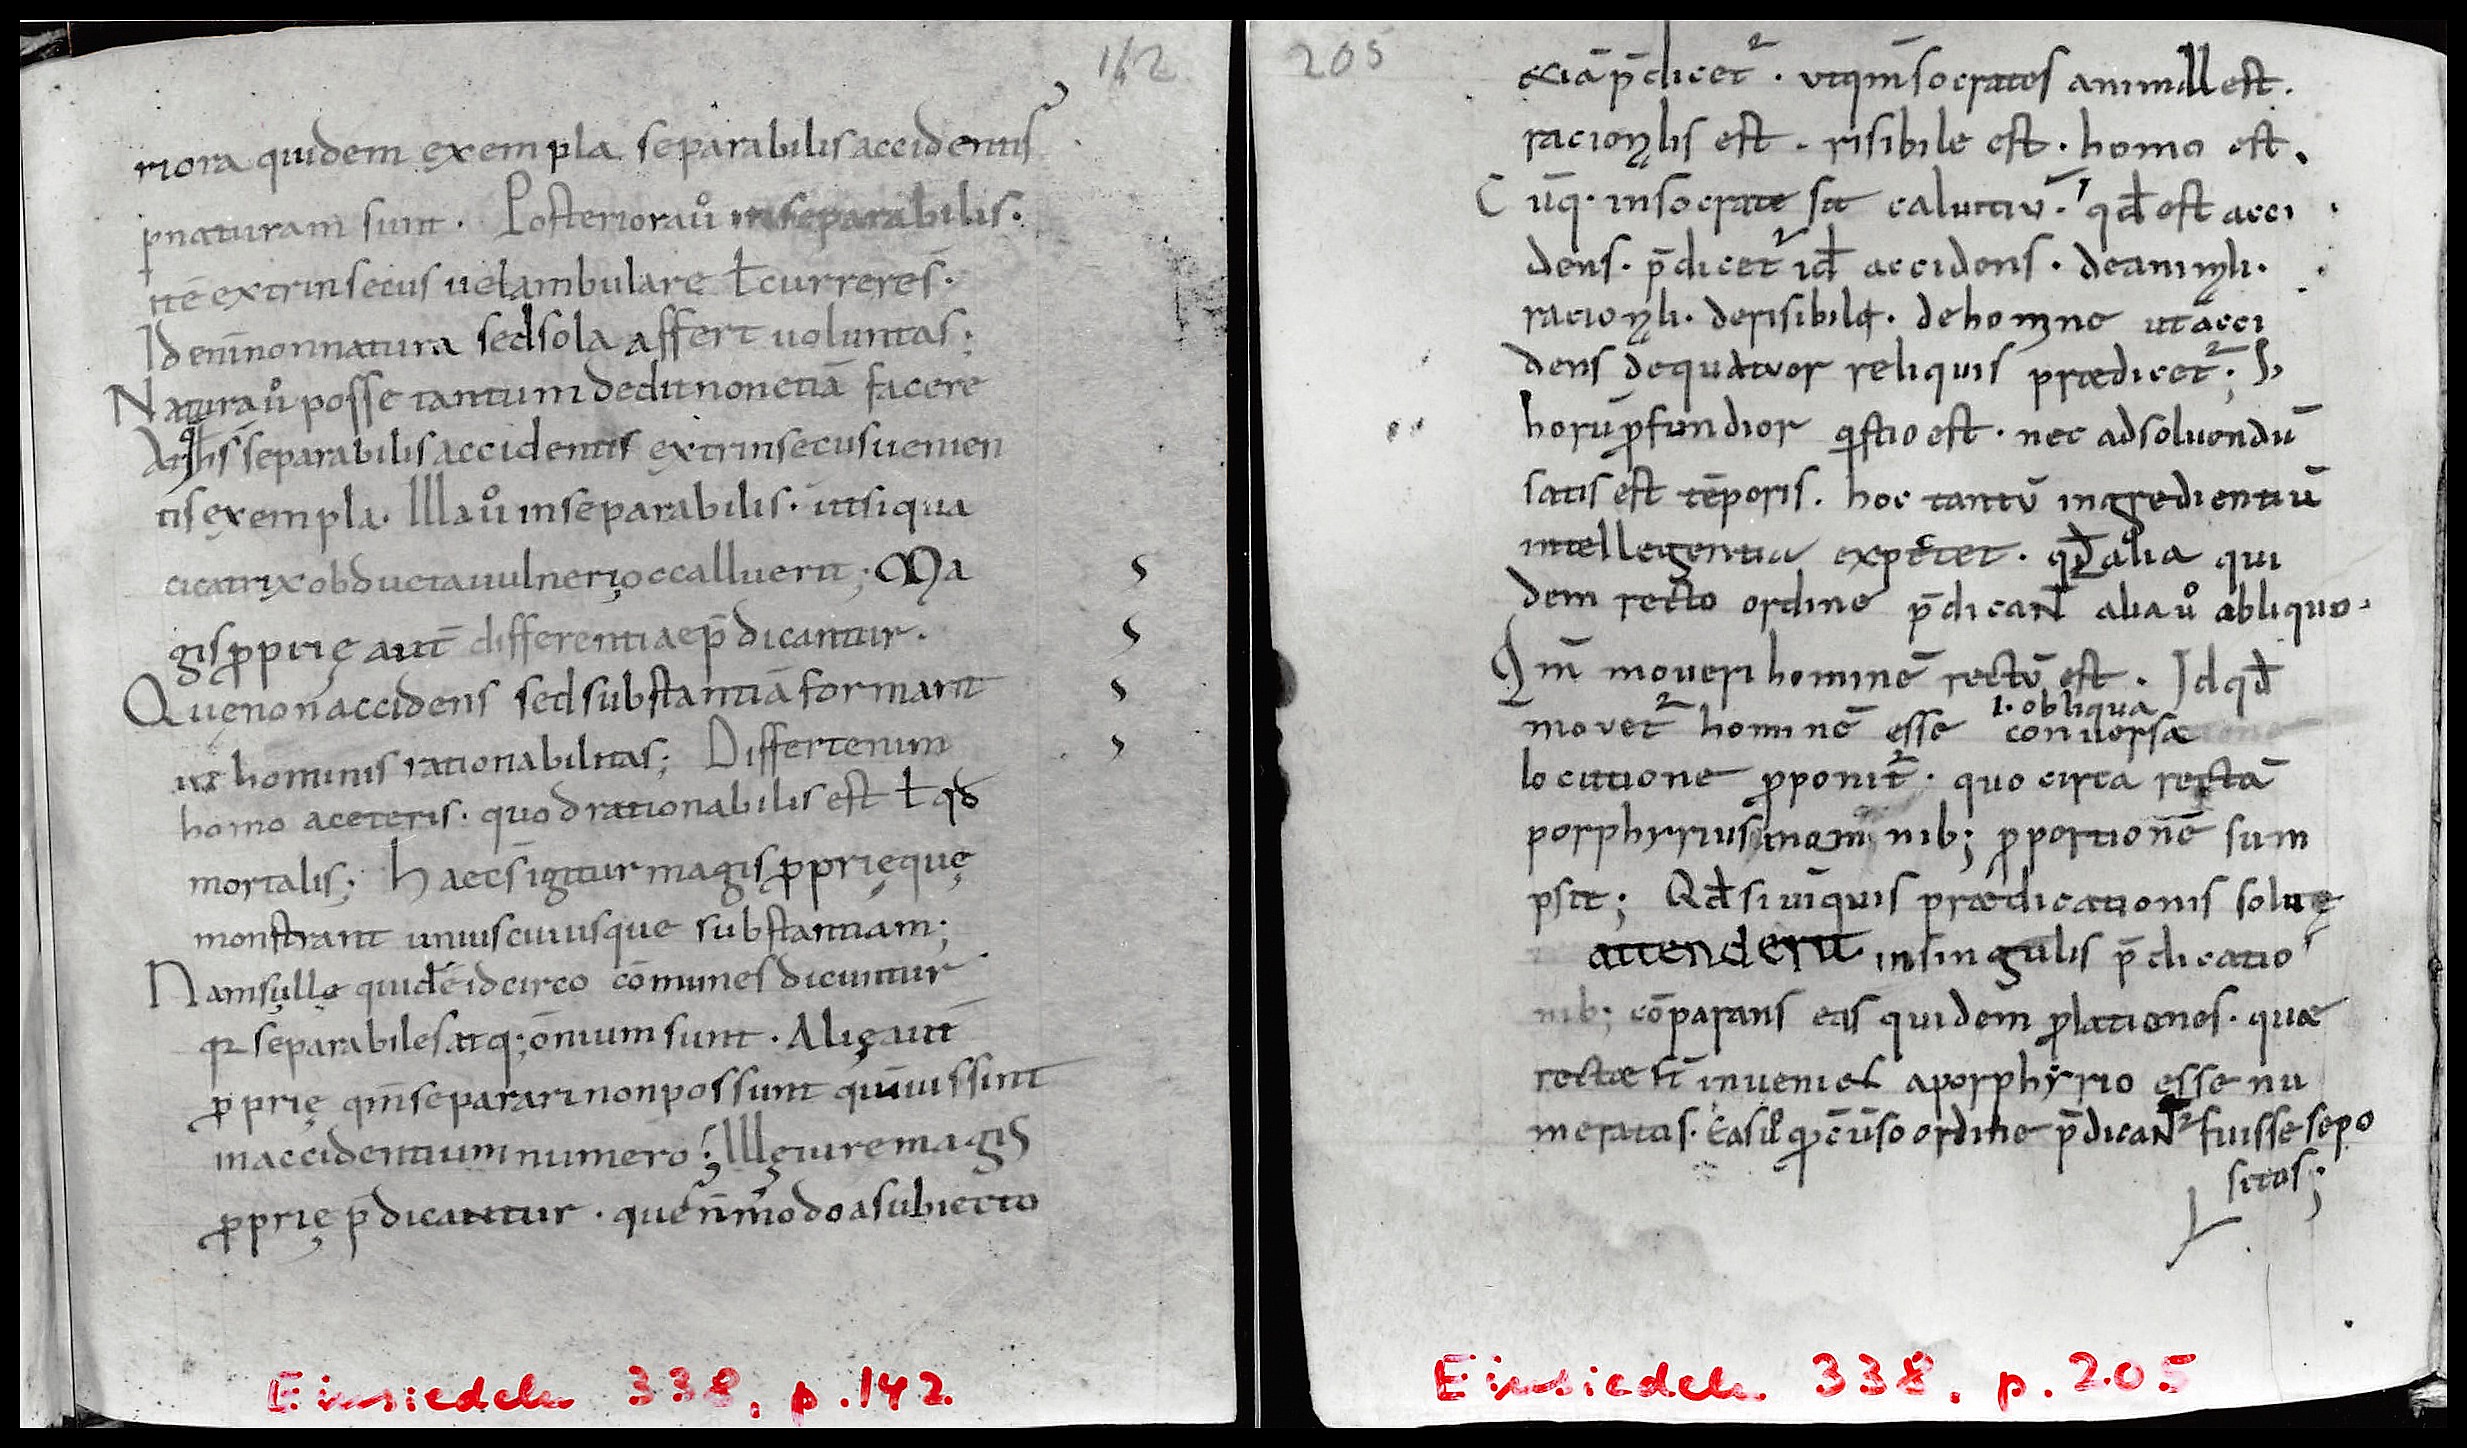 142
riora quidem exempla separabilis accidentis
p naturam sunt. Posteriora ů inseparabilis.
itē extrinsecus uel ambulare ł currere s̄.
Id eni̅ non natura sed sola affert uoluntas;
Natura ů posse tantum dedit non etiā facere
separabilis accidentis extrinsecus uenien
tis exempla. Illa ů inseparabilis. ut si qua
cicatrix obducta uulnere occalluerit; Ma
gis ꝓprię aut̄ differentiae p̄dicantur.
Quę non accidens sed substantiā formant
ut hominis rationabilitas; Differt enim
homo a ceteris. quod rationabilis est ł qđ
mortalis; Haec s̄ igitur magis ꝓprię quę
monstrant uniuscuiusque substantiam;
Nam s̄ illę quidē idcirco cōmunes dicuntur
separabiles atq; ōmnium sunt. Alię aut̄
ꝓprię qm̄ separari non possunt quāuis sint
in accidentium numero; Illę iure magis
ꝓprię p̄dicantur. quę n̄ modo a subiecto
Einsiedeln 338, p. 142
205
p̄dicet᷑. ut qm̄ socrates animal est.
racionalis est. risibile est. homo est.
Cūq. in socrate sit caluitiū. qđ est acci
dens. p̄dicet᷑ id accidens. de animali.
racionali. de risibile. de homine ut acci
dens de quatuor reliquis prædicet᷑; S;
horū ꝓfundior qstio est. nec ad soluendū
satis est tēporis. hoc tantū ingredientiū
intellegentia expectet. qđ alia qui
dem recto ordine p̄dicaNT alia ů obliquo.
Qm̄ moueri hominē rectū est. Id qđ
mouet᷑ hominē esse conuersa
l. obliqua
locutione ꝓponit᷑. quocirca rectā
porphyrius in om̄nib; ꝓportionē sum
psit; Qđ si uī quis prædicationis soluę
attenderit in singulis p̄dicatio
nib; cōparans eas quidem ꝓlationes. quæ
rectæ st̄ inueniet a porphyrio esse nu
meratas. eas ů q̄ cūso ordine p̄dicaNT᷑ fuisse sepo
sitas;
Einsiedeln 338, p. 205